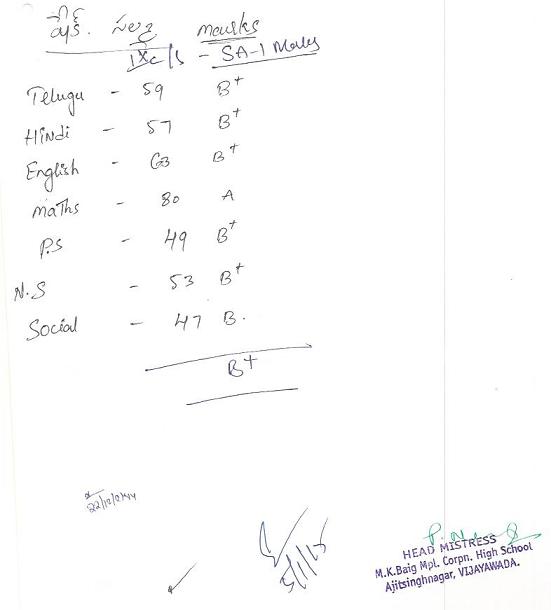 marks
IXc/s - SA-1 Marks
Telugu - 59 B+
Hindi - 57 B+
English - 63 B+
maths - 80 A
P.S - 49 B+
N.S - 53 B+
Social - 47 B.
B+
HEAD MISTRESS
M.K.Baig Mpl. Corpn. High School
Ajitsinghnagar, VIJAYAWADA.